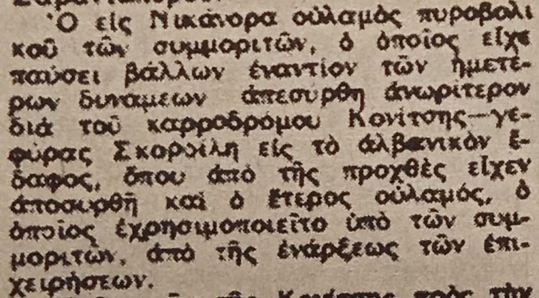 Ὁ εἰς Νικάνορα οὐλαμὸς πυροβολι
κοῦ τῶν συμμοριτῶν, ὁ ὁποῖος εἶχε
παύσει βάλλων ἐναντίον τῶν ἡμετέ-
ρων δυνάμεων ἀπεσύρθη ἀνωρίτερον
διὰ τοῦ καρροδρόμου Κονίτσης—γε-
φύρας εἰς τὸ ἀλβανικὸν ἔ-
δαφος, ὅπου ἀπὸ τῆς προχθὲς εἶχεν
ἀποσυρθῆ καὶ ὁ ἕτερος οὐλαμός, ὁ
ὁποῖος ἐχρησιμοποιεῖτο ὑπὸ τῶν συμ-
μοριτῶν, ἀπὸ τῆς ἐνάρξεως τῶν ἐπι-
χειρήσεων.
Κονίτσης πρὸς τὴν